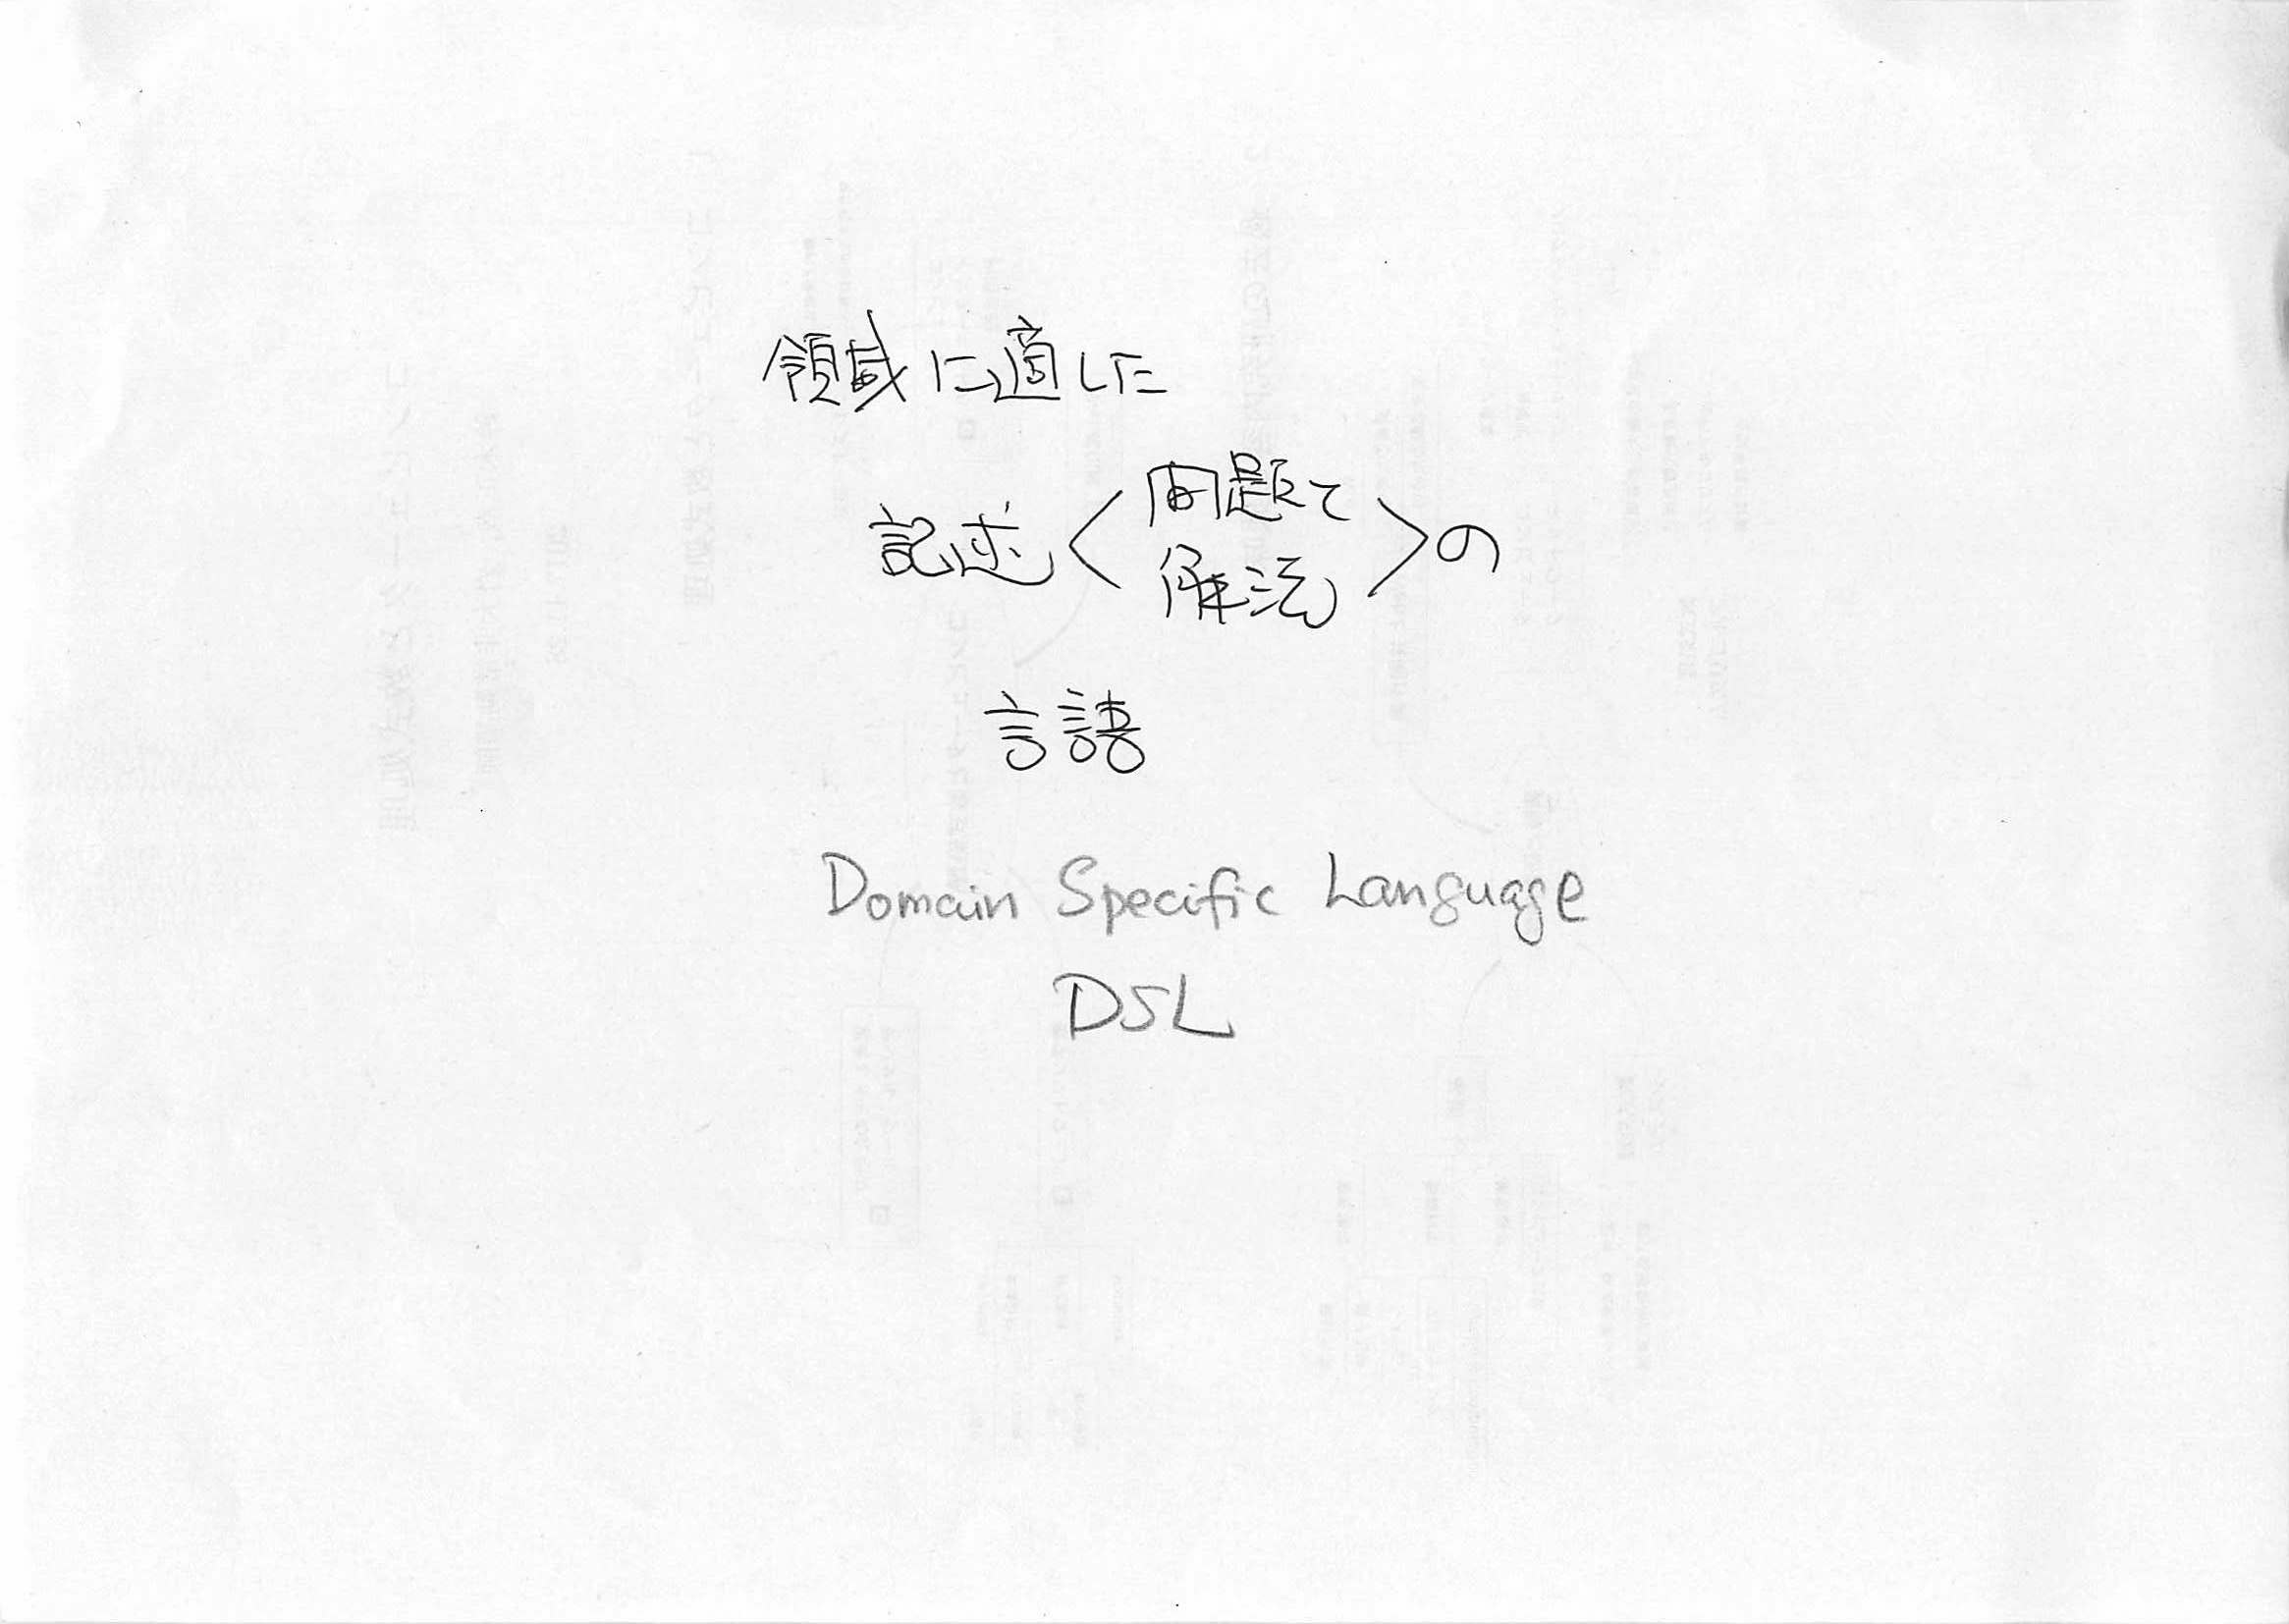 領域に適した
記述〈問題と
解法〉の
言語
Domain Specific Language
DSL